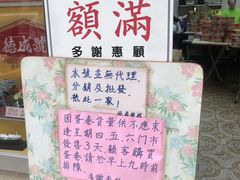 額滿
多謝惠顧
德成號
本號並無代理
分銷及批發
祗此一家！
因蛋卷貨量供不應求
逢星期四、五、六門市
發售3天，顧客購買
蛋卷請於早上九時前